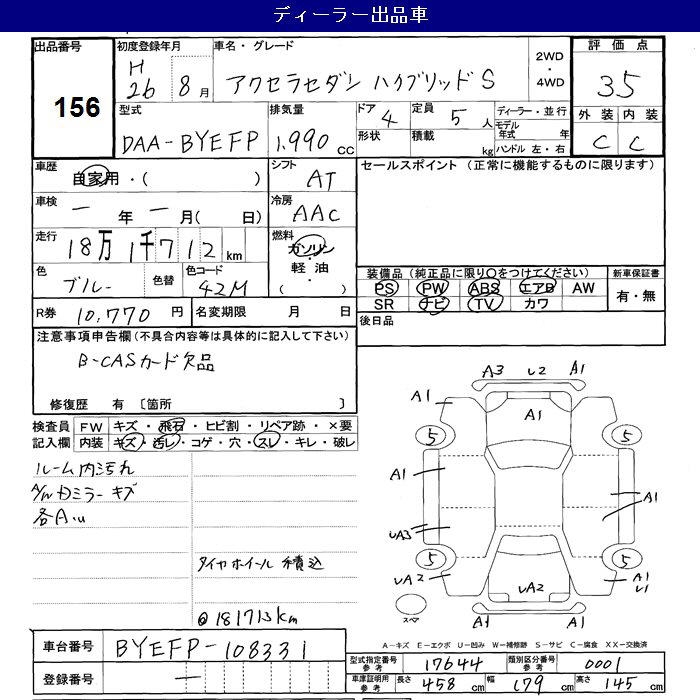 ディーラー出品車
出品番号
156
初度登録年月
H
26 8 月
車名・グレード
アクセラセダン ハイブリッドS
2WD
・
4WD
評価点
3.5
外装 内装
C C
型式
DAA-BYEFP
排気量
1.990 cc
ドア 4
定員 5 人
形状
積載 kg
ディーラー・並行
モデル
年式 年
ハンドル 左・右
車歴
自家用・( )
シフト
AT
セールスポイント (正常に機能するものに限ります)
車検
ー 年 ー 月( 日)
冷房
AAC
走行
18万 1千 7 1 2 km
燃料
ガソリン
・
軽油
・
( )
色
ブルー
色替
色コード
42M
装備品(純正品に限り○をつけてください)
新車保証書
PS PW ABS エアB AW
SR ナビ TV カワ
有・無
R券 10,770 円
名変期限 月 日
後日品
注意事項申告欄(不具合内容等は具体的に記入して下さい)
B-CASカード欠品
修復歴 有 〔箇所 〕
検査員
記入欄
FW キズ・飛石・ヒビ割・リペア跡・×要
内装 キズ・汚レ・コゲ・穴・スレ・キレ・破レ
ルーム内汚れ
A/W Dミラー キズ
各A.u
タイヤホイール 積込
@181713km
A3 U2 A1
A1 A1 A1
5 5
A1 A1
UA3 A1
5 5
UA2 UA2 A1
U1
A1 A1
スペア
A-キズ E-エクボ U-凹み W-補修跡 S-サビ C-腐食 XX-交換済
車台番号 BYEFP-108331
登録番号 ー
型式指定番号
参考
17644
類別区分番号
参考
0001
車庫証明用
参考
長さ 458 cm
幅 179 cm
高さ 145 cm